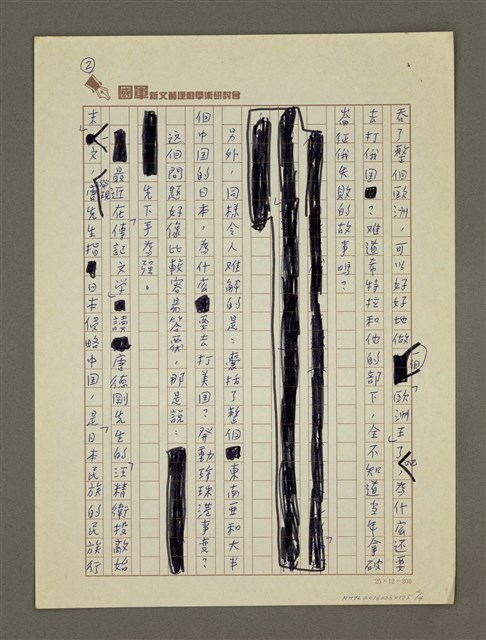 ②
國軍新文藝運動學術研討會
吞了整個歐洲,可以好好地做一個歐洲王了吧,為什麼還要
去打俄国?难道希特拉和他的部下,全不知道当年拿破
崙征俄失敗的故事嗎?
另外,同樣令人难解的是:囊括了整個東南亜和大半
個中国的日本,為什麼要去打美国?発動珍珠港事变?
这個問題好像比較容易答覆,那是說:
先下手為强。
最近在「傳記文学」讀唐德剛先生的「汪精衛投敵始
末」文,發現唐先生指日本侵略中国,是「日本民族的民族行
25×12=300